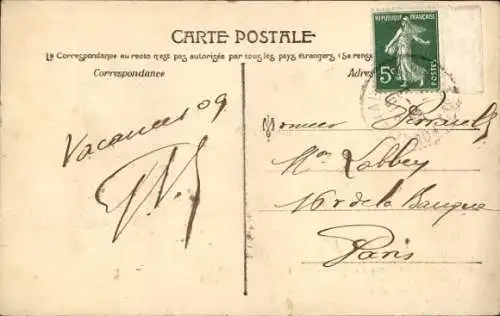 CARTE POSTALE
La Correspondance au recto n'est pas autorisée par tous les pays étrangers (Se rens
Correspondance
Adres
REPUBLIQUE FRANÇAISE
5c
POSTES
Vacances 09
Monsieur Perrault
Mon Labbey
16 r de la Banque
Paris